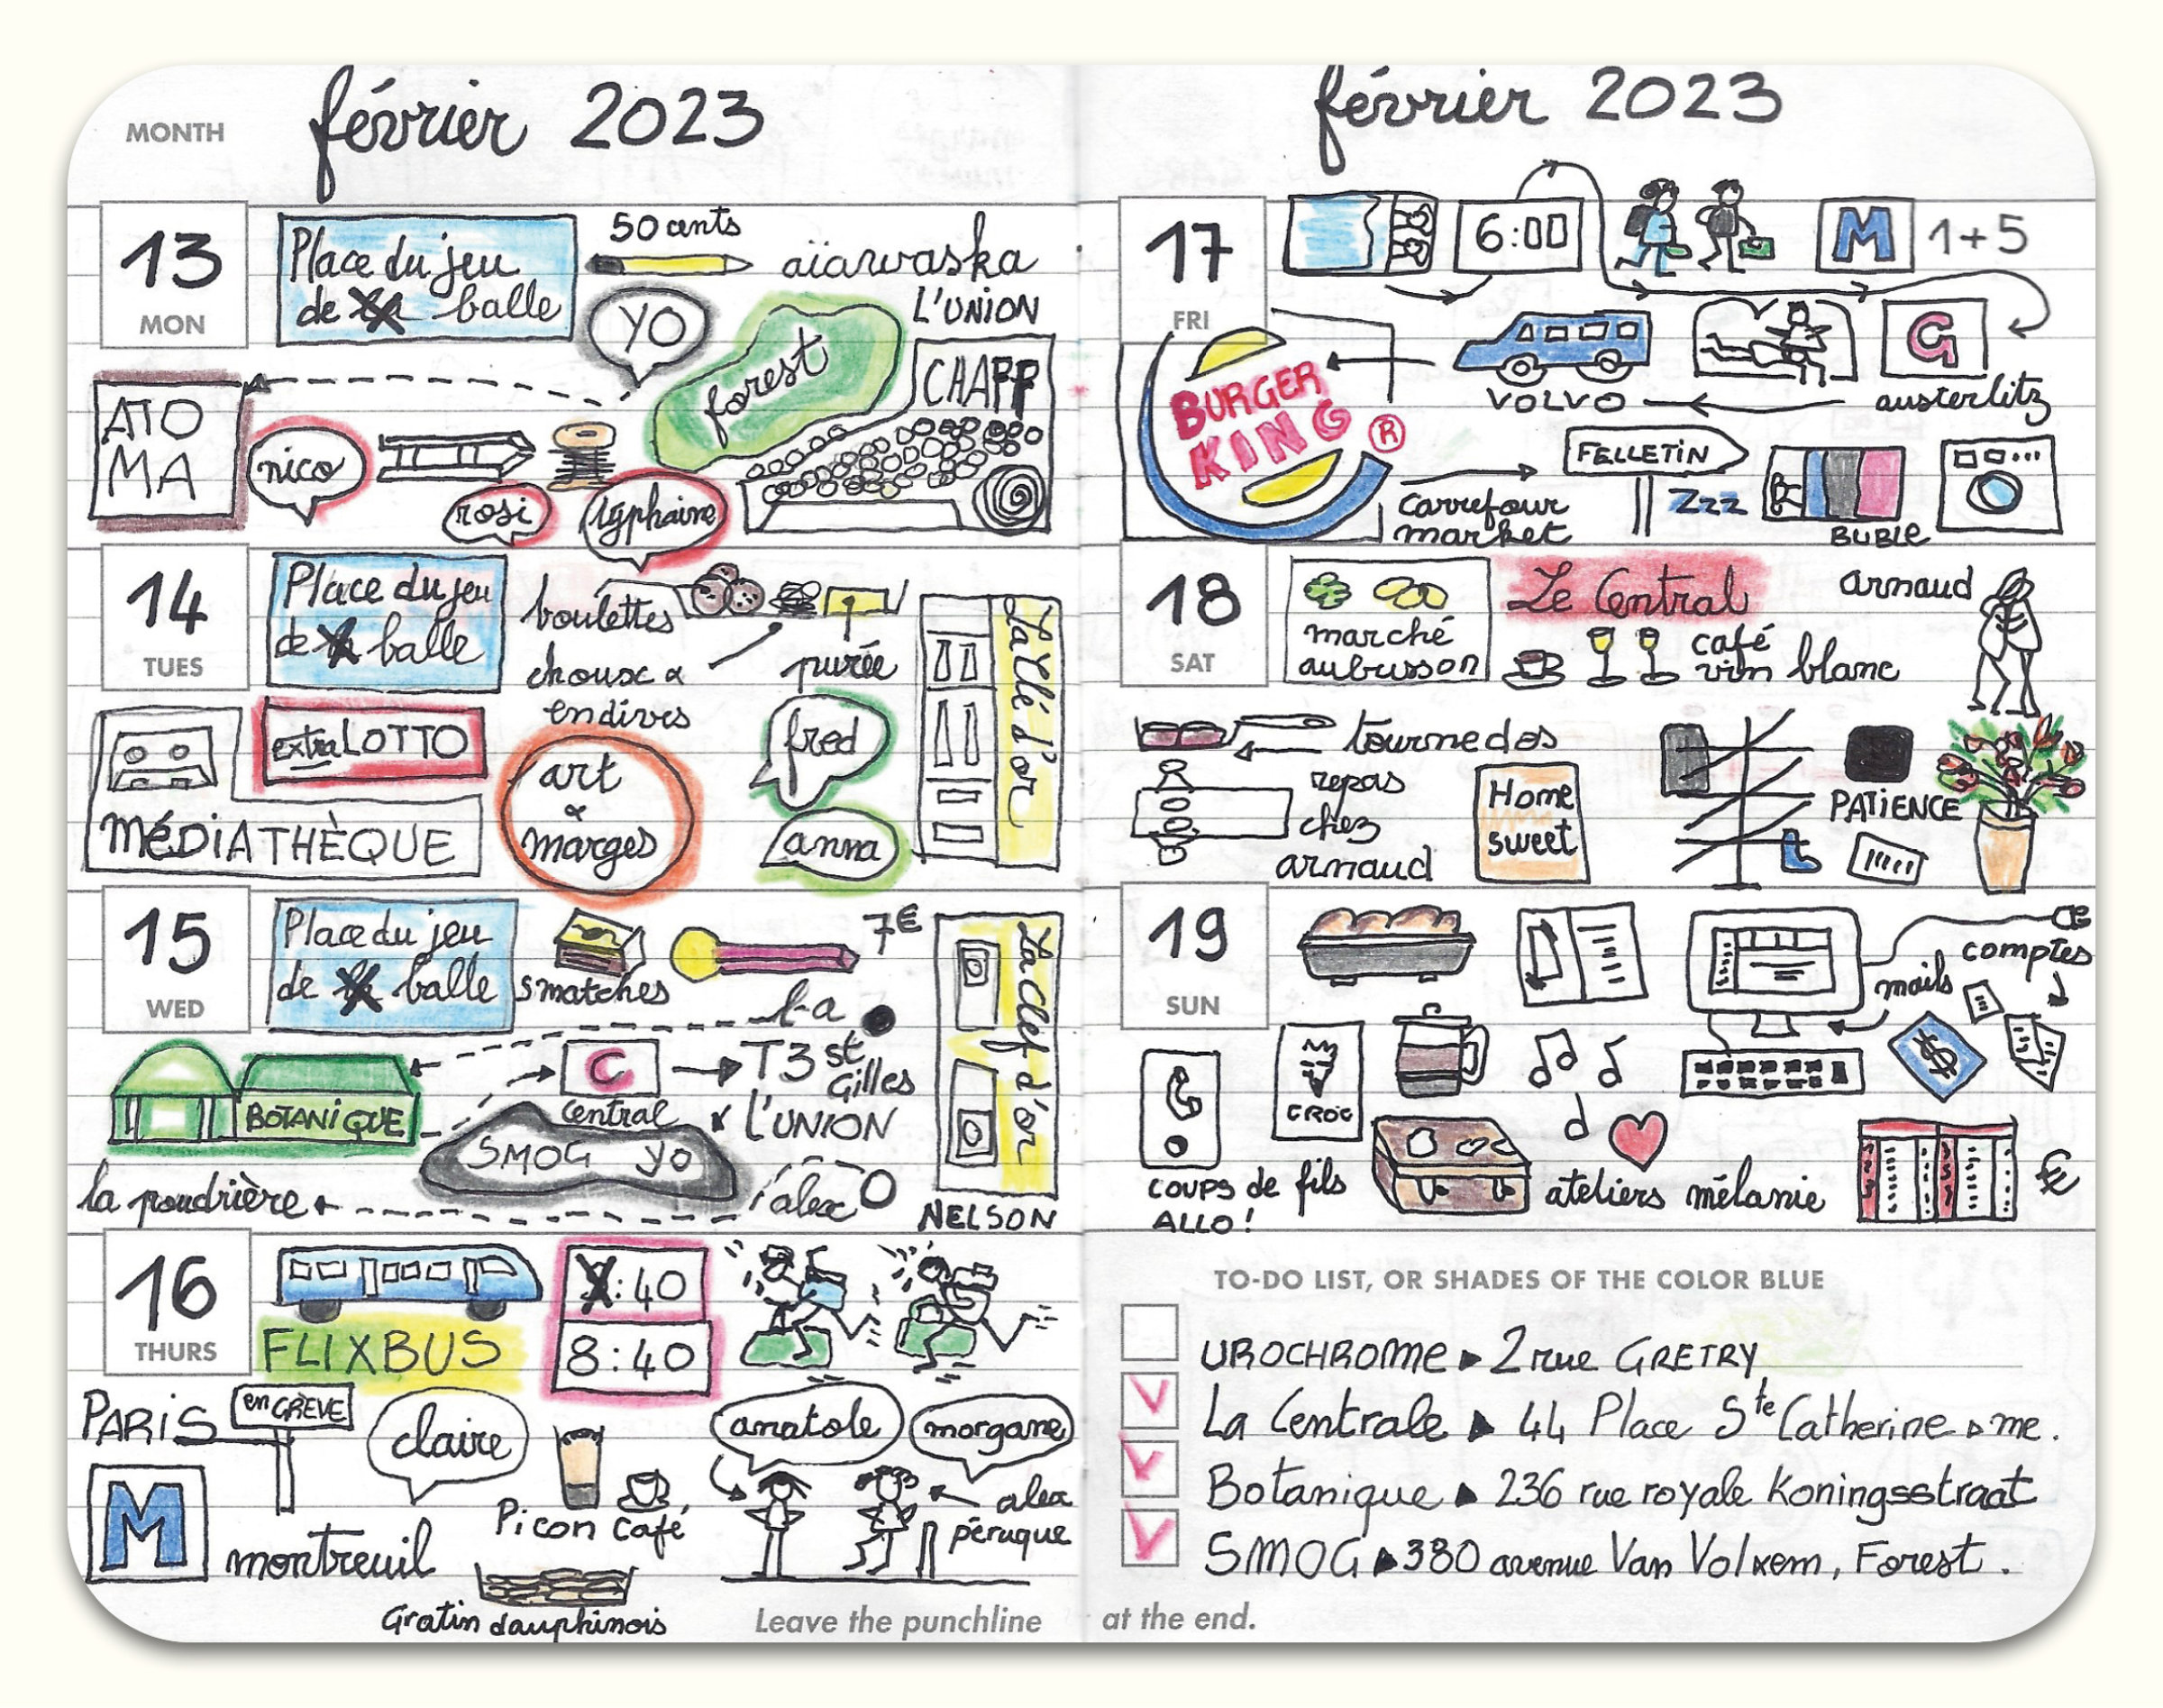 MONTH
février 2023
13
MON
Place du jeu
de la balle
50 cents
aïarwaska
L'UNION
YO
forest
CHAPP
ATO
MA
nico
rosi
typhaine
14
TUES
Place du jeu
de la balle
boulettes
choux &
endives
purée
La Clé d'or
extra LOTTO
MÉDIATHÈQUE
art
&
marges
fred
anna
15
WED
Place du jeu
de la balle
smatches
7€
l-a
BOTANIQUE
C
central
T3 st
Gilles
L'UNION
SMOG YO
la poudrière
alex
La Clef d'or
NELSON
16
THURS
FLIXBUS
:40
8:40
PARIS
en GRÈVE
claire
Picon Café
anatole
morgane
alex
péruque
M
montreuil
Gratin dauphinois
Leave the punchline
février 2023
17
FRI
6:00
M
1+5
BURGER
KING
®
VOLVO
G
austerlitz
carrefour
market
FELLETIN
Zzz
BUBLE
18
SAT
marché
aubusson
Le Central
café
vin blanc
arnaud
tournedos
repas
chez
arnaud
Home
sweet
PATIENCE
19
SUN
mails
comptes
CROC
coups de fils
ALLO!
ateliers mélanie
€
TO-DO LIST, OR SHADES OF THE COLOR BLUE
UROCHROME ▸ 2 rue GRETRY
La Centrale ▸ 44 Place Ste Catherine ▹ me.
Botanique ▸ 236 rue royale Koningsstraat
SMOG ▸ 380 avenue Van Volxem, Forest.
at the end.